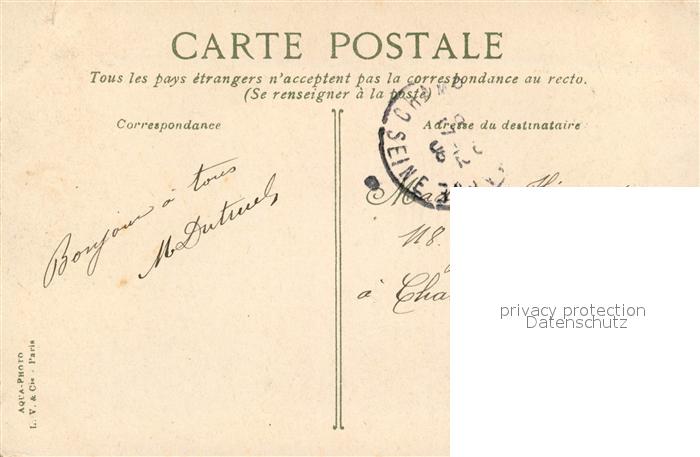 CARTE POSTALE
Tous les pays étrangers n'acceptent pas la correspondance au recto.
(Se renseigner à la poste)
Correspondance
Adresse du destinataire
CHAMP
SEINE
Bonjour à tous
118.
à Cha
privacy protection
Datenschutz
AQUA-PHOTO
L. V. & Cie - Paris